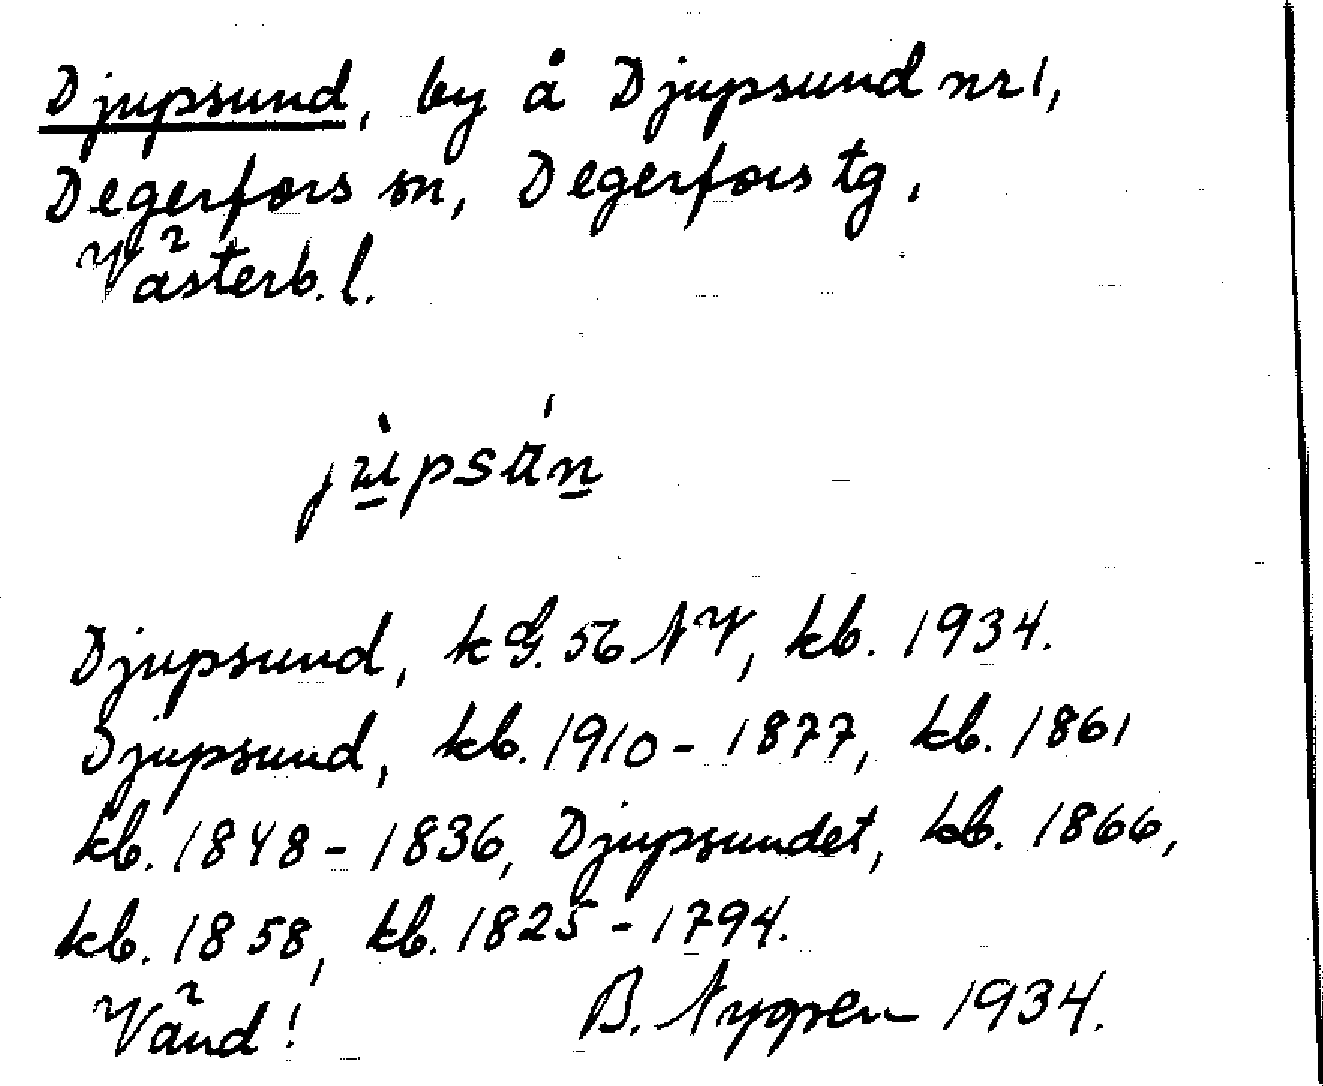 Djupsund, by å Djupsund nr 1,
Degerfors sn, Degerfors tg.
Västerb. l.
Djupsund, kG. 56 NV, kb. 1934.
Djupsund, kb. 1910 - 1877, kb. 1861
kb. 1848 - 1836, Djupsundet, kb. 1866,
kb. 1858, kb. 1825 - 1794.
Vänd! B. 1934.